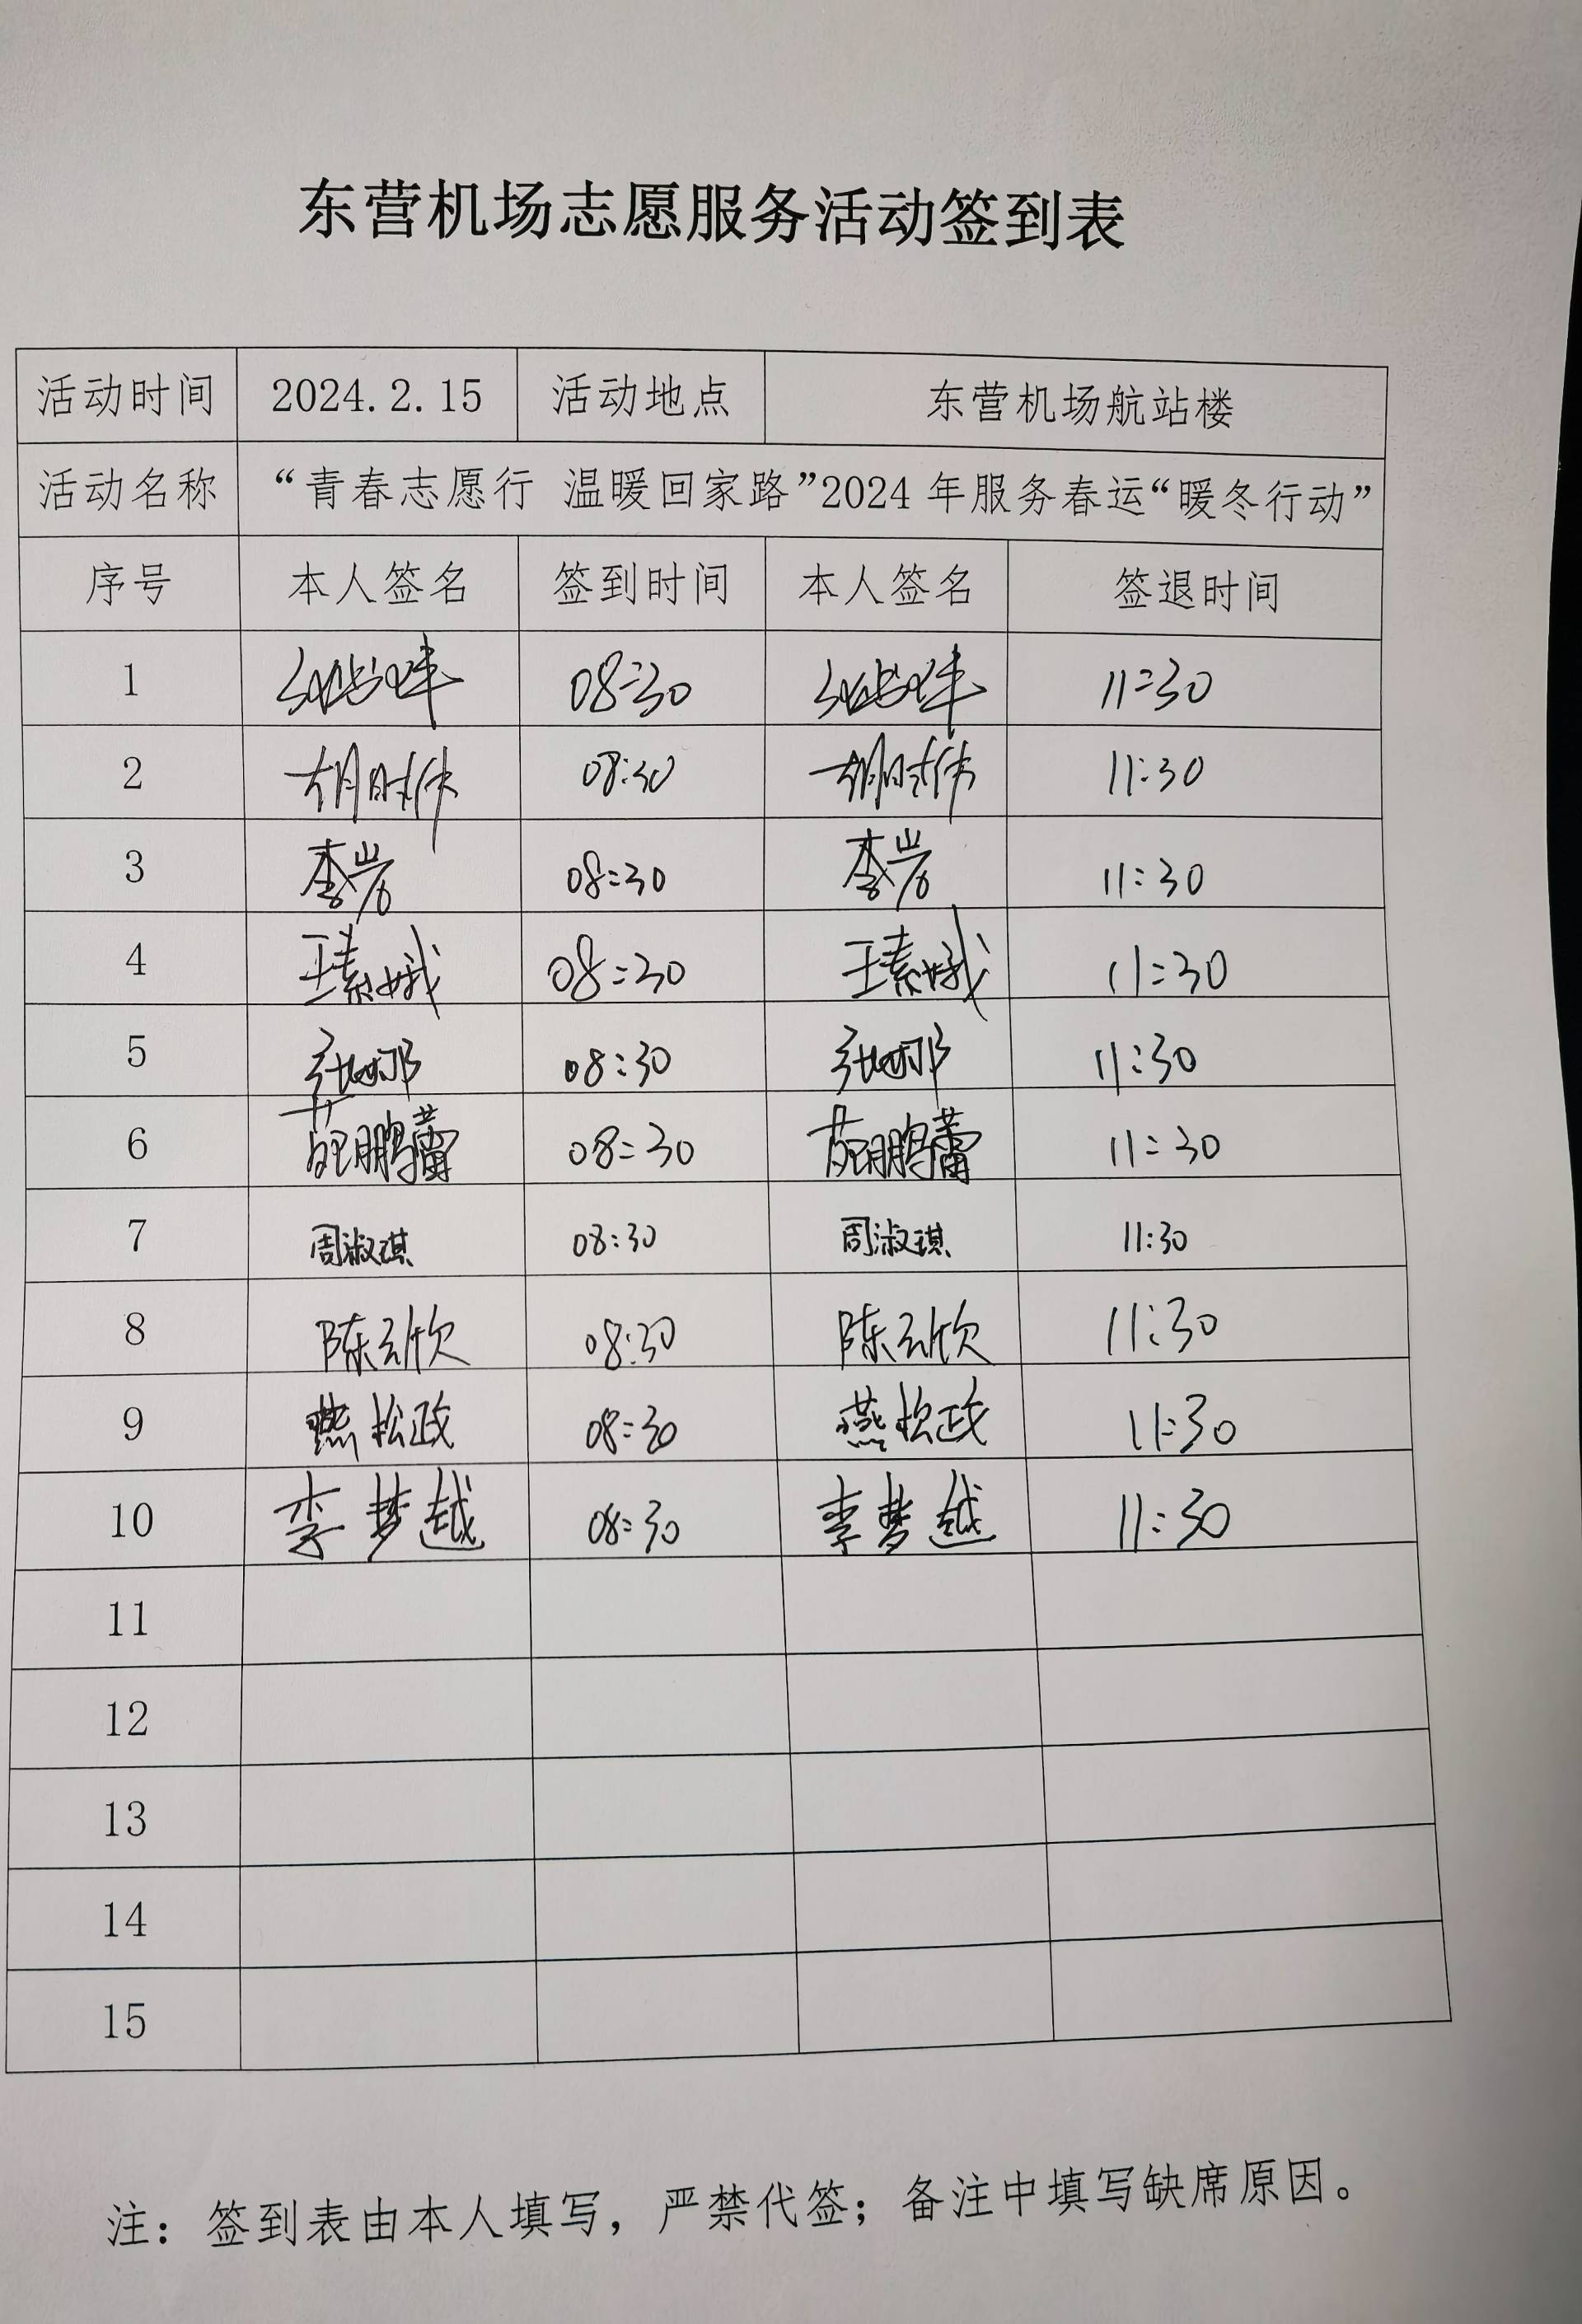 东营机场志愿服务活动签到表
活动时间 2024.2.15 活动地点 东营机场航站楼
活动名称 “青春志愿行 温暖回家路”2024年服务春运“暖冬行动”
序号 本人签名 签到时间 本人签名 签退时间
1 08:30 11:30
2 胡时伟 08:30 胡时伟 11:30
3 李岩 08:30 李岩 11:30
4 王素娥 08:30 王素娥 11:30
5 张娜 08:30 张娜 11:30
6 08:30 11:30
7 周淑琪 08:30 周淑琪 11:30
8 陈云欣 08:30 陈云欣 11:30
9 燕松政 08:30 燕松政 11:30
10 李梦越 08:30 李梦越 11:30
11
12
13
14
15
注：签到表由本人填写，严禁代签；备注中填写缺席原因。